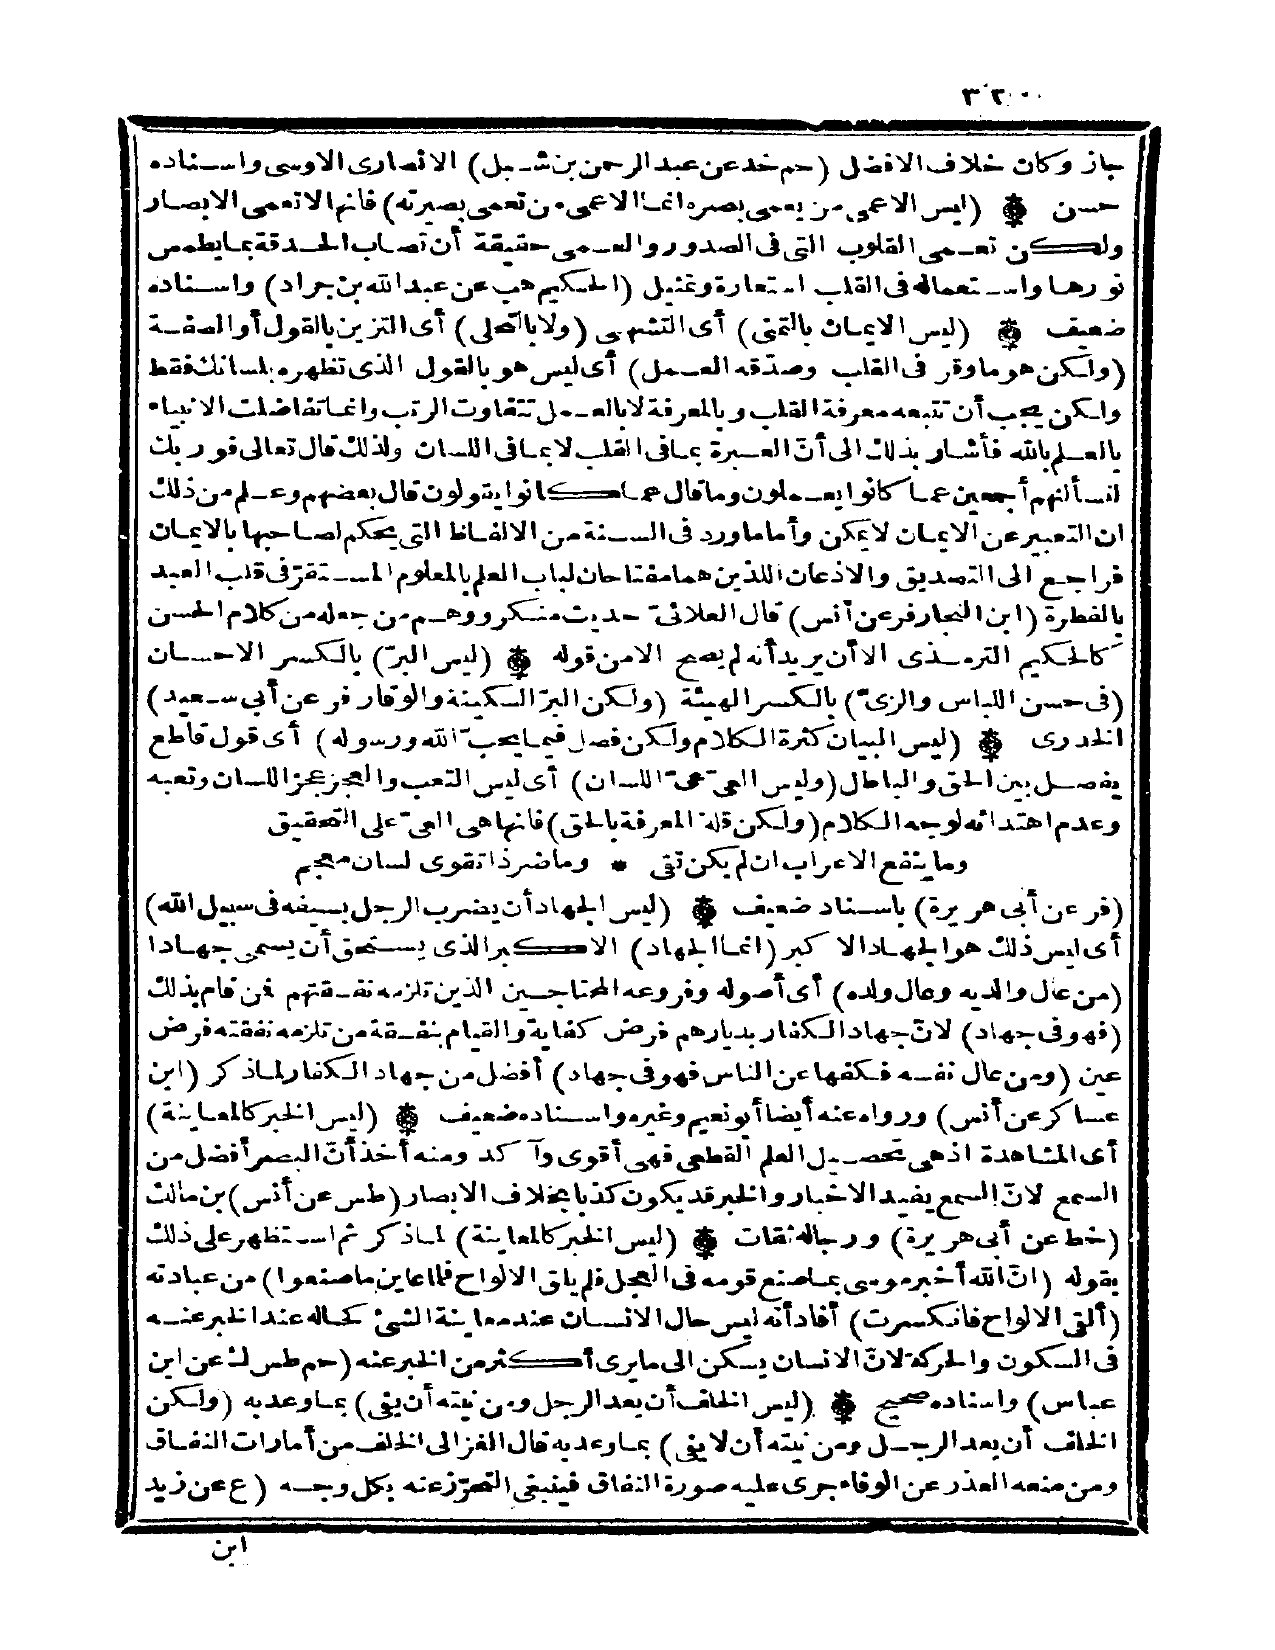 ٣٢٠
جاز وكان خلاف الافضل (حم خد عن عبد الرحمن بن شبل) الانصارى الاوسى واسناده
حسن ۞ (ليس الاعمى من يعمى بصره انما الاعمى من تعمى بصيرته) فانها لا تعمى الابصار
ولكن تعمى القلوب التى فى الصدور والعمى حقيقة أن تصاب الحدقة بما يطمس
نورها واستعماله فى القلب استعارة وتمثيل (الحكيم هب عن عبد الله بن جراد) واسناده
ضعيف ۞ (ليس الايمان بالتمنى) أى التشهى (ولا بالتحلى) أى التزين بالقول أو الصفة
(ولكن هو ما وقر فى القلب وصدّقه العمل) أى ليس هو بالقول الذى تظهره بلسانك فقط
ولكن يجب أن تتبعه معرفة القلب وبالمعرفة لا بالعمل تتفاوت الرتب وانما تفاضلت الانبياء
بالعلم بالله فأشار بذلك الى أنّ العبرة بما فى القلب لا بما فى اللسان ولذلك قال تعالى فوربك
لنسألنهم أجمعين عما كانوا يعملون وما قال عما كانوا يقولون قال بعضهم وعلم من ذلك
ان التعبير عن الايمان لا يمكن وأما ما ورد فى السنة من الالفاظ التى يحكم لصاحبها بالايمان
فراجع الى التصديق والاذعان اللذين هما مفتاحان لباب العلم بالمعلوم المستقرّ فى قلب العبد
بالفطرة (ابن النجار فر عن أنس) قال العلائىّ حديث منكر ووهم من جعله من كلام الحسن
كالحكيم الترمذى الا أن يريد أنه لم يصح الا من قوله ۞ (ليس البرّ) بالكسر الاحسان
(فى حسن اللباس والزىّ) بالكسر الهيئة (ولكن البرّ السكينة والوقار فر عن أبى سعيد)
الخدرى ۞ (ليس البيان كثرة الكلام ولكن فصل فيما يحبّ الله ورسوله) أى قول قاطع
يفصل بين الحق والباطل (وليس العىّ عىّ اللسان) أى ليس التعب والعجز عجز اللسان وتعبه
وعدم اهتدائه لوجه الكلام (ولكن قلة المعرفة بالحق) فانها هى العىّ على التحقيق
وما ينفع الاعراب ان لم يكن تقى * وما ضر ذا تقوى لسان معجم
(فر عن أبى هريرة) باسناد ضعيف ۞ (ليس الجهاد أن يضرب الرجل بسيفه فى سبيل الله)
أى ليس ذلك هو الجهاد الاكبر (انما الجهاد) الاكبر الذى يستحق أن يسمى جهادا
(من عال والديه وعال ولده) أى أصوله وفروعه المحتاجين الذين تلزمه نفقتهم فمن قام بذلك
(فهو فى جهاد) لانّ جهاد الكفار بديارهم فرض كفاية والقيام بنفقة من تلزمه نفقته فرض
عين (ومن عال نفسه فكفها عن الناس فهو فى جهاد) أفضل من جهاد الكفار لما ذكر (ابن
عساكر عن أنس) ورواه عنه أيضا أبو نعيم وغيره واسناده ضعيف ۞ (ليس الخبر كالمعاينة)
أى المشاهدة اذ هى تحصيل العلم القطعى فهى أقوى وآكد ومنه أخذ أنّ البصر أفضل من
السمع لانّ السمع يفيد الاخبار والخبر قد يكون كذبا بخلاف الابصار (طس عن أنس) بن مالك
(خط عن أبى هريرة) ورجاله ثقات ۞ (ليس الخبر كالمعاينة) لما ذكر ثم استظهر على ذلك
بقوله (انّ الله أخبر موسى بما صنع قومه فى العجل فلم يلق الالواح فلما عاين ما صنعوا) من عبادته
(ألقى الالواح فانكسرت) أفاد أنه ليس حال الانسان عند معاينة الشئ كحاله عند الخبر عنه
فى السكون والحركة لانّ الانسان يسكن الى ما يرى أكثر من الخبر عنه (حم طس ك عن ابن
عباس) واسناده صحيح ۞ (ليس الخلف أن يعد الرجل ومن نيته أن يفى) بما وعد به (ولكن
الخلف أن يعد الرجل ومن نيته أن لا يفى) بما وعد به قال الغزالى الخلف من أمارات النفاق
ومن منعه العذر عن الوفاء جرى عليه صورة النفاق فينبغى التحرّز عنه بكل وجه (ع عن زيد
ابن